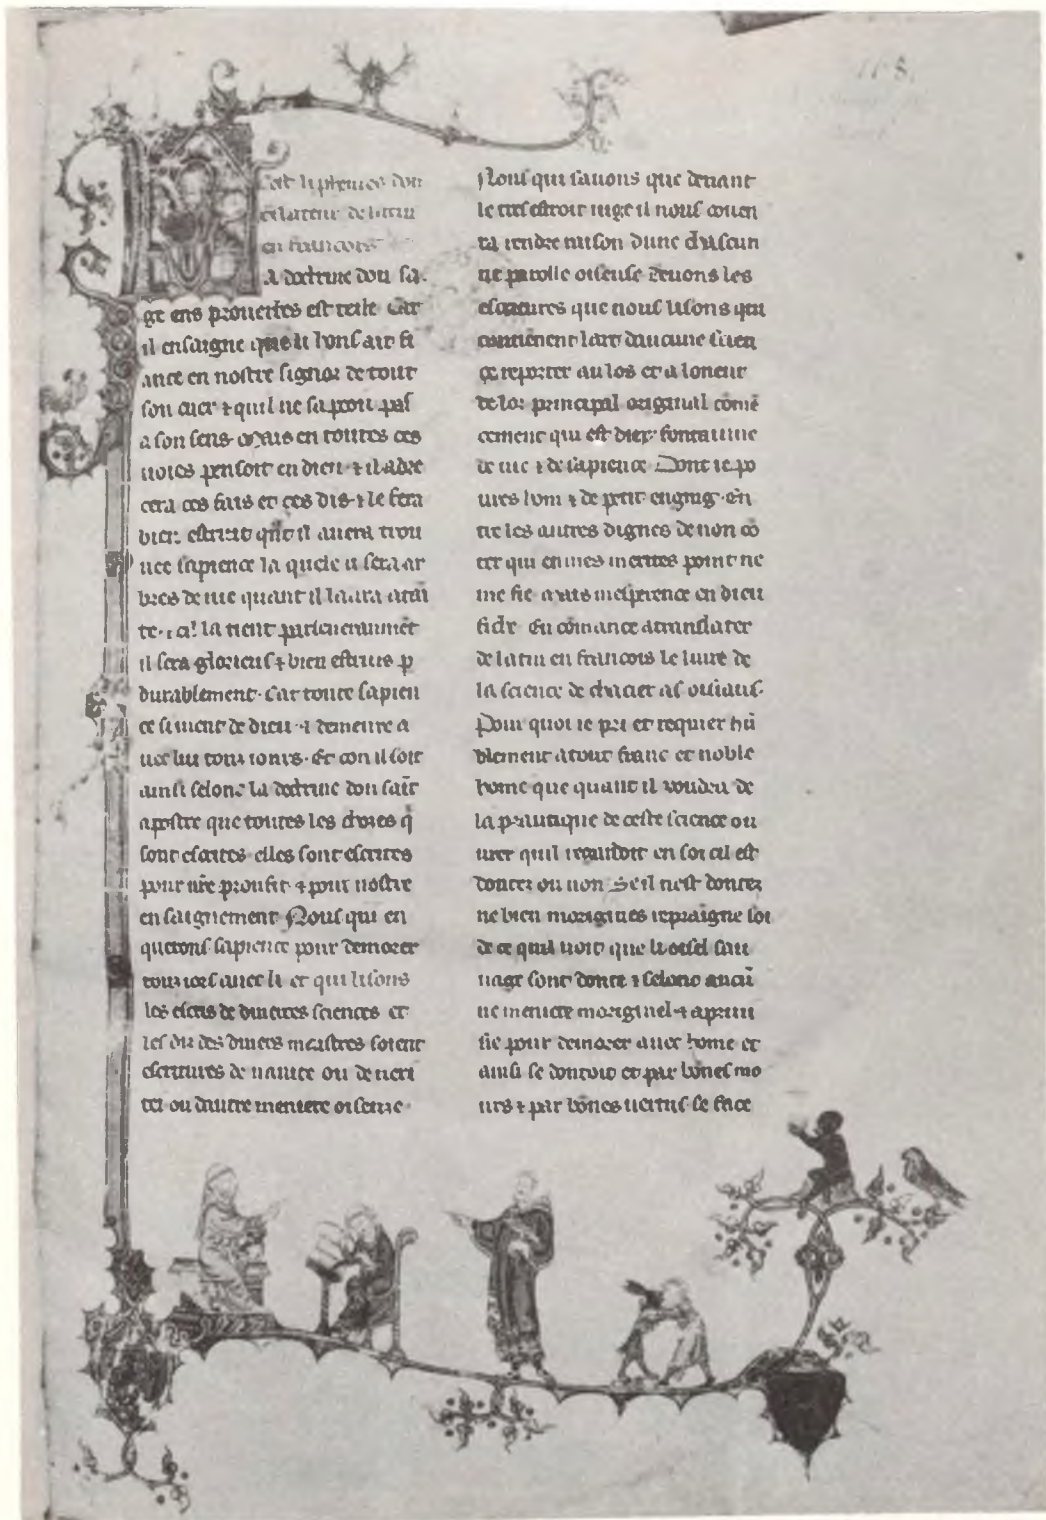 Cest li prologues dou
en francois
a doctrine dou sa
ge ens prouerbes est tele Car
il ensaigne que li hons ait fi
ance en nostre signor de tout
son cuer ⁊ quil ne sapoit pas
a son sens mais en toutes ces
uoies pensoit en dieu ⁊ il adre
cera ces fais et ces dis ⁊ le fera
bien il auera trou
uee sapience la quele li sera ar
bres de uie quant il laura atai
te ⁊ cil la tient
il sera glorieus ⁊ bien p
durablement Car toute sapien
ce si uient de dieu ⁊ demeure a
uec lui touz iours Et con il soit
ainsi selonc la doctrine dou sait
apostre que toutes les choses q
sont escrites elles sont escrites
pour nre proufit ⁊ pour nostre
ensaignement Nous qui en
querons sapience pour demorer
touz iors auec li et qui lisons
les escris de diuerses sciences et
les dis des diuers maistres soient
escritures de nature ou de ueri
tei ou dautre meniere oiseuse
Nous qui sauons que deuant
le tres estroit iuge il nous couen
ra rendre raison dune chascun
ne parolle oiseuse deuons les
escritures que nous lisons qui
contienent lart daucune scien
ce reporter au los et a loneur
de lor principal original come
cement qui est diex fontainne
de uie ⁊ de sapience Dont ie po
ures hom ⁊ de petit enging en
tre les autres dignes de non co
ter qui en mes merites point ne
me fie mais mesperence en dieu
fichr En comance a translater
de latin en francois le liure de
la science de chacier as oisiaus
Pour quoi ie pri et requier hu
blement a tout franc et noble
home que quant il voudra de
la prautique de ceste science ou
urer quil regardoit en soi cil est
dontez ou non Se il nest dontez
ne bien morigines repraigne soi
de ce quil uoit que li oisel sau
uage sont donte ⁊ selonc aucu
ne meniere moriginei ⁊ apriui
sie pour demorer auec home et
ainsi se dontoit et par bones mo
urs ⁊ par bones uertus se face